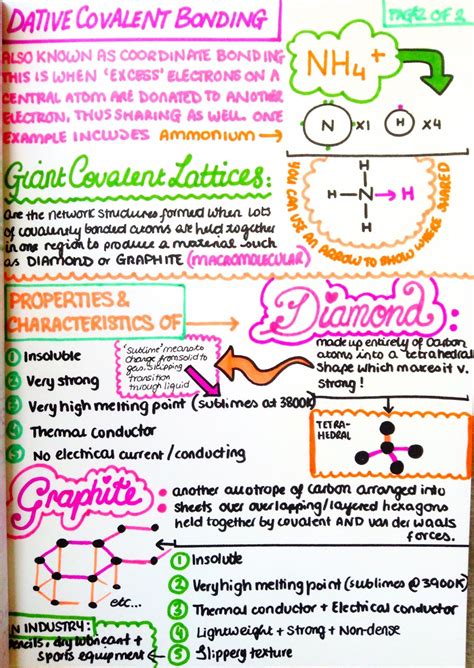 DATIVE COVALENT BONDING
PAGE 2 OF 2
ALSO KNOWN AS COORDINATE BONDING
THIS IS WHEN 'EXCESS' ELECTRONS ON A
CENTRAL ATOM ARE DONATED TO ANOTHER
ELECTRON, THUS SHARING AS WELL. ONE
EXAMPLE INCLUDES AMMONIUM →
NH4+
N x1 H x4
Giant Covalent Lattices:
are the network structures formed when lots
of covalently bonded atoms are held together
in one region to produce a material such
as DIAMOND or GRAPHITE (MACROMOLECULAR)
H
H N → H
H
YOU CAN USE AN ARROW TO SHOW WHERE SHARED
PROPERTIES &
CHARACTERISTICS OF
Diamond:
made up entirely of carbon
atoms into a tetrahedral
shape which makes it v.
strong!
'sublime' means to
change from solid to
gas, skipping
transition
through liquid
1 Insoluble
2 Very strong
3 Very high melting point (sublimes at 3800K)
4 Thermal conductor
5 No electrical current/conducting
TETRA-
HEDRAL
Graphite:
another allotrope of carbon arranged into
sheets over overlapping/layered hexagons
held together by covalent AND van der Waals
forces.
etc...
1 Insoluble
2 Very high melting point (sublimes @ 3900K)
3 Thermal conductor + Electrical conductor
4 Lightweight + Strong + Non-dense
5 Slippery texture
IN INDUSTRY:
pencils, dry lubricant +
sports equipment